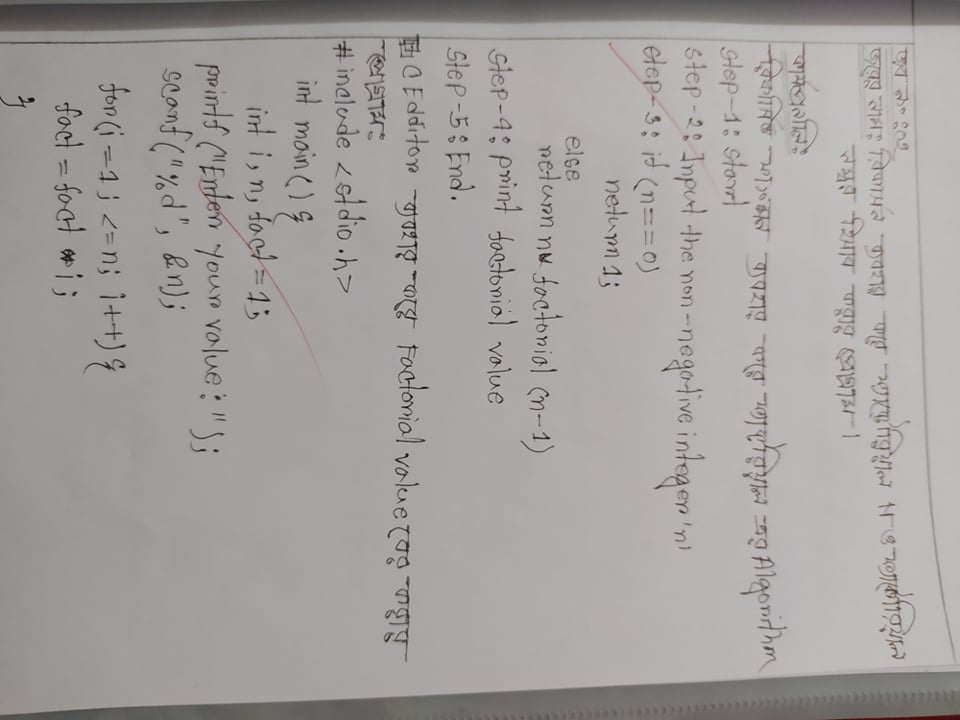 জব নং: ০৭
জবের নাম: রিকার্সন ব্যবহার করে ফ্যাক্টোরিয়াল N-ও ফ্যাক্টোরিয়াল
নম্বর হিসাব করার প্রোগ্রাম।
কার্যপ্রণালি:
রিকার্সিভ ফাংশন ব্যবহার করে ফ্যাক্টোরিয়াল এর Algorithm
Step-1: Start
Step-2: Input the non-negative integer 'n'
Step-3: if (n==0)
return 1;
else
return n* factorial (n-1)
Step-4: print factorial value
Step-5: End.
C Edditor ব্যবহার করে Factorial value বের করার
প্রোগ্রাম:
#include <stdio.h>
int main() {
int i, n, fact = 1;
printf ("Enter your value: ");
scanf ("%d", &n);
for(i = 1; <=n; i++) {
fact = fact * i;
}